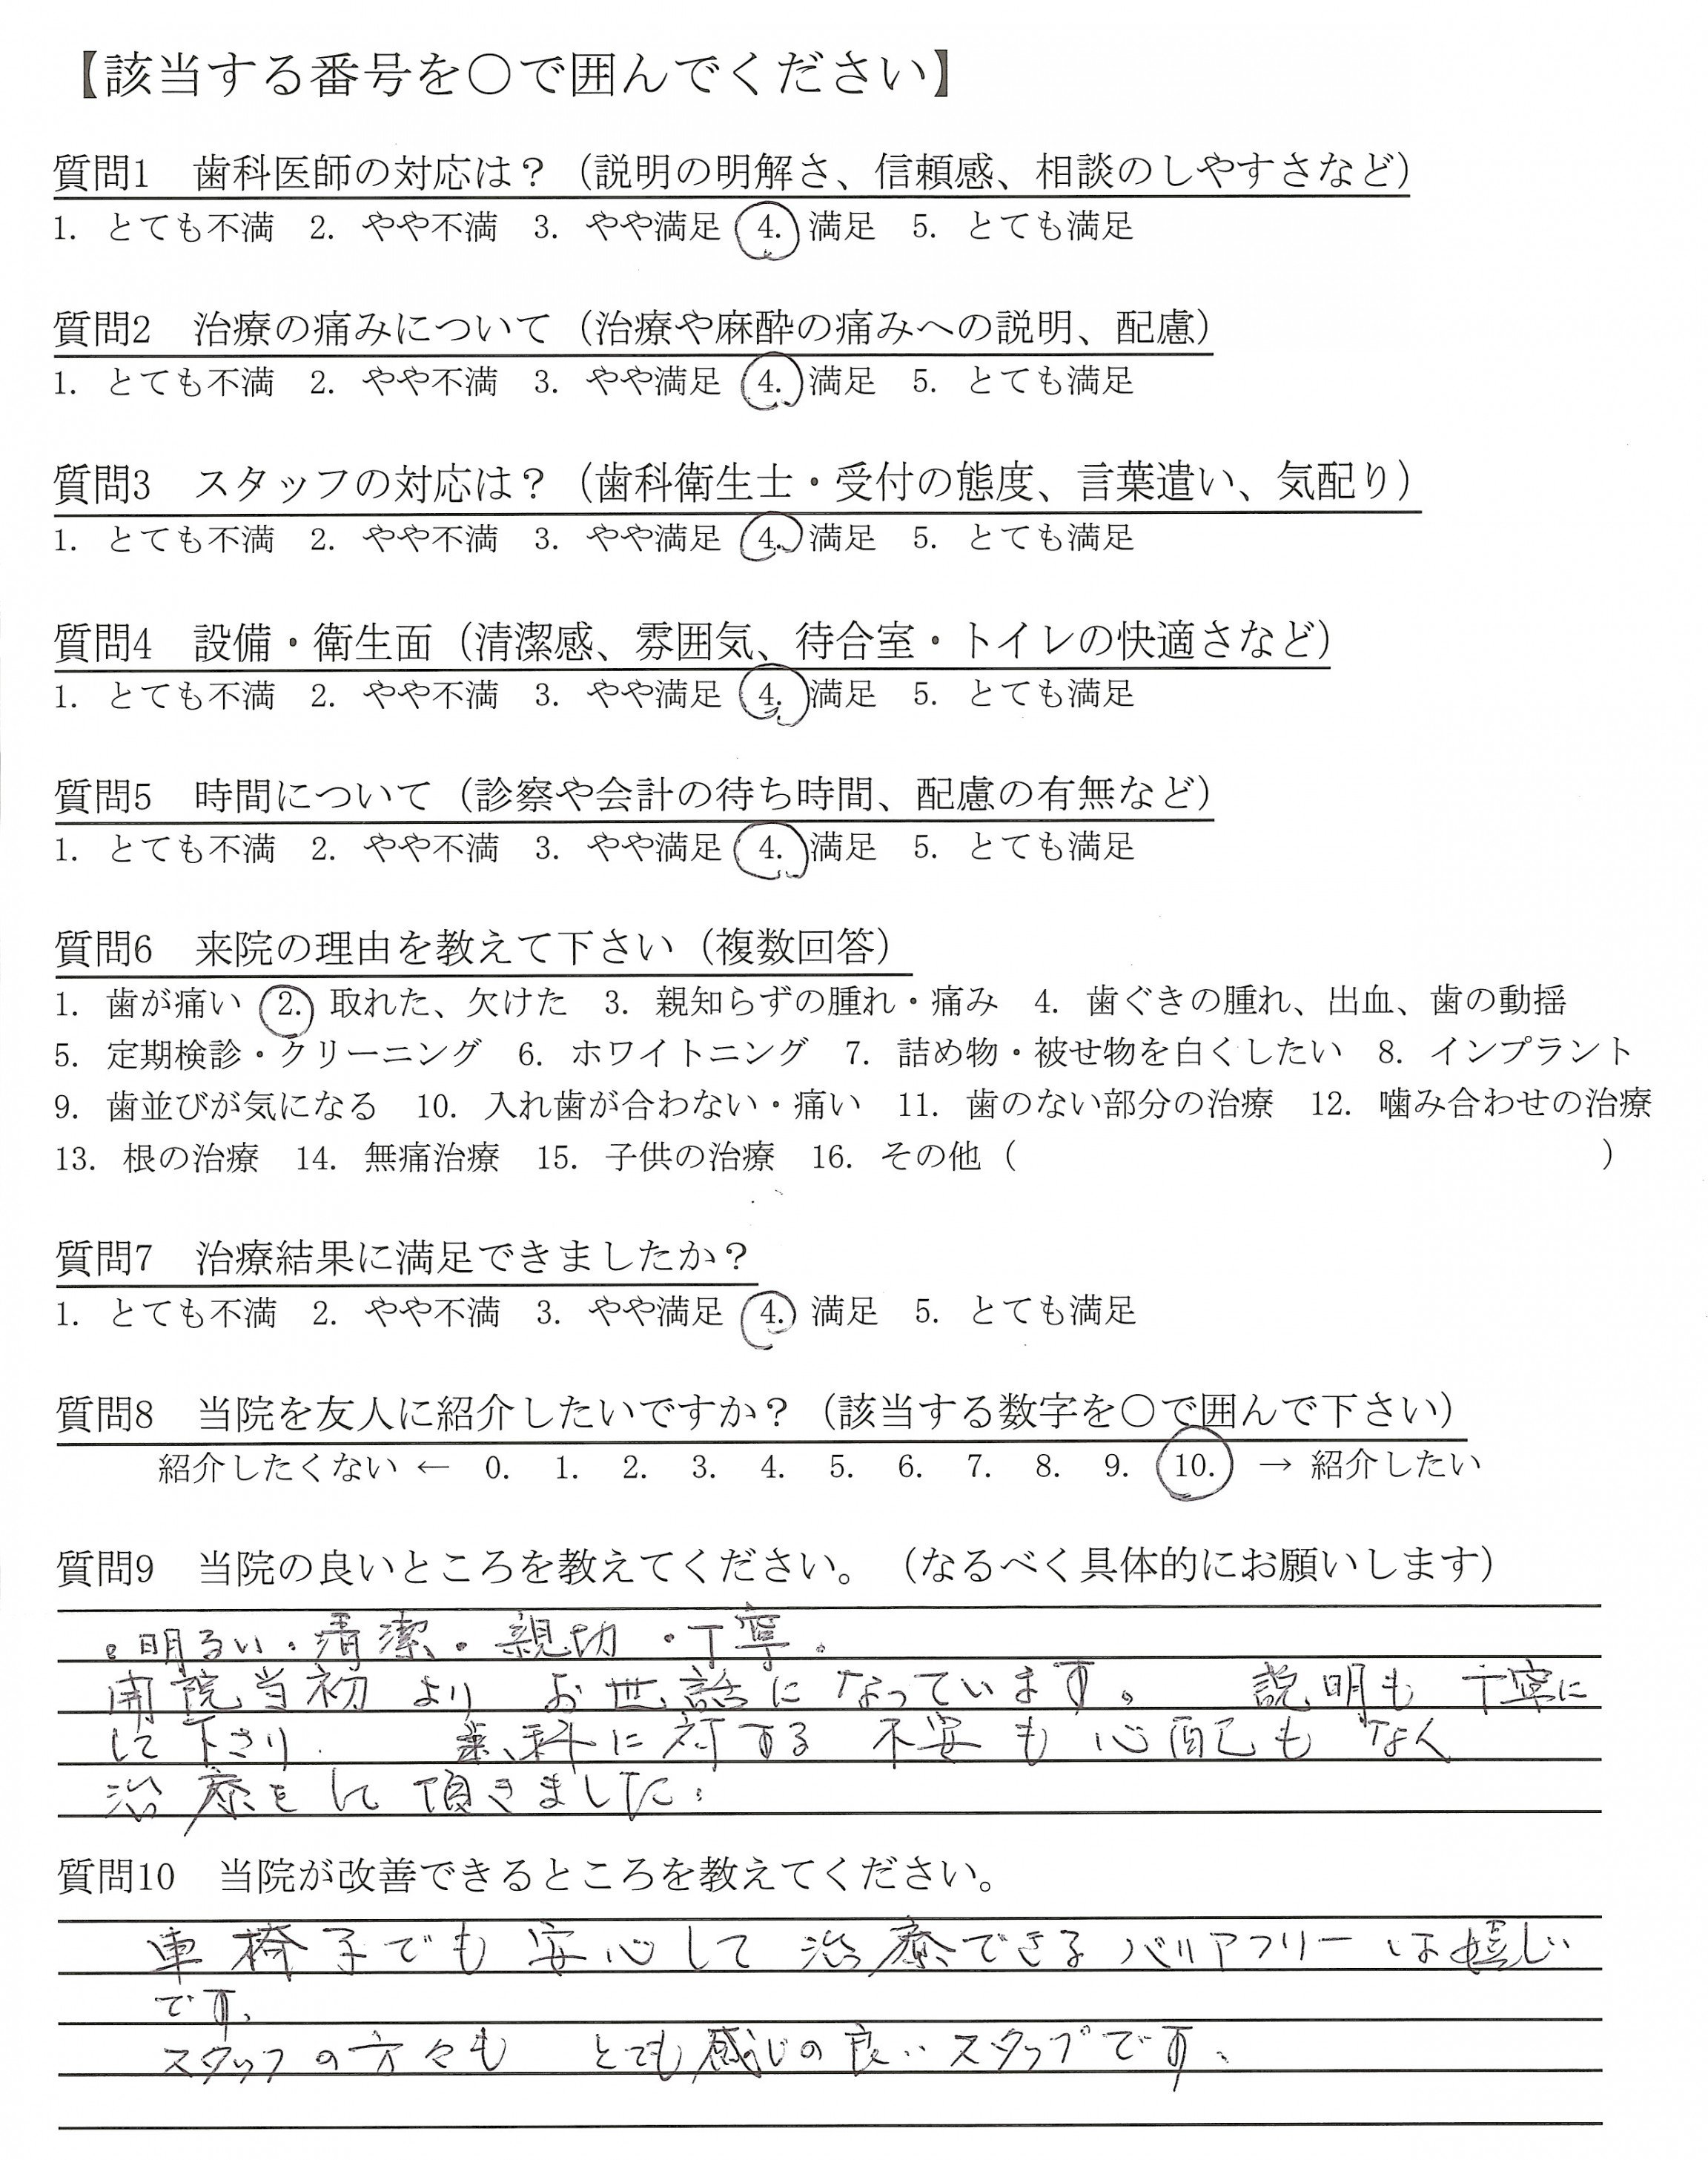 【該当する番号を○で囲んでください】
質問1　歯科医師の対応は？（説明の明解さ、信頼感、相談のしやすさなど）
1. とても不満　2. やや不満　3. やや満足　4. 満足　5. とても満足
質問2　治療の痛みについて（治療や麻酔の痛みへの説明、配慮）
1. とても不満　2. やや不満　3. やや満足　4. 満足　5. とても満足
質問3　スタッフの対応は？（歯科衛生士・受付の態度、言葉遣い、気配り）
1. とても不満　2. やや不満　3. やや満足　4. 満足　5. とても満足
質問4　設備・衛生面（清潔感、雰囲気、待合室・トイレの快適さなど）
1. とても不満　2. やや不満　3. やや満足　4. 満足　5. とても満足
質問5　時間について（診察や会計の待ち時間、配慮の有無など）
1. とても不満　2. やや不満　3. やや満足　4. 満足　5. とても満足
質問6　来院の理由を教えて下さい（複数回答）
1. 歯が痛い　2. 取れた、欠けた　3. 親知らずの腫れ・痛み　4. 歯ぐきの腫れ、出血、歯の動揺
5. 定期検診・クリーニング　6. ホワイトニング　7. 詰め物・被せ物を白くしたい　8. インプラント
9. 歯並びが気になる　10. 入れ歯が合わない・痛い　11. 歯のない部分の治療　12. 噛み合わせの治療
13. 根の治療　14. 無痛治療　15. 子供の治療　16. その他（　　　　　　　　　　）
質問7　治療結果に満足できましたか？
1. とても不満　2. やや不満　3. やや満足　4. 満足　5. とても満足
質問8　当院を友人に紹介したいですか？（該当する数字を○で囲んで下さい）
紹介したくない ← 0. 1. 2. 3. 4. 5. 6. 7. 8. 9. 10. → 紹介したい
質問9　当院の良いところを教えてください。（なるべく具体的にお願いします）
。明るい・清潔・親切・丁寧。
開院当初より　お世話になっています。　説明も丁寧に
して下さり、　歯科に対する不安も心配もなく
治療をして頂きました。
質問10　当院が改善できるところを教えてください。
車椅子でも安心して治療できるバリアフリーは嬉しい
です。
スタッフの方々も　とても感じの良いスタッフです。